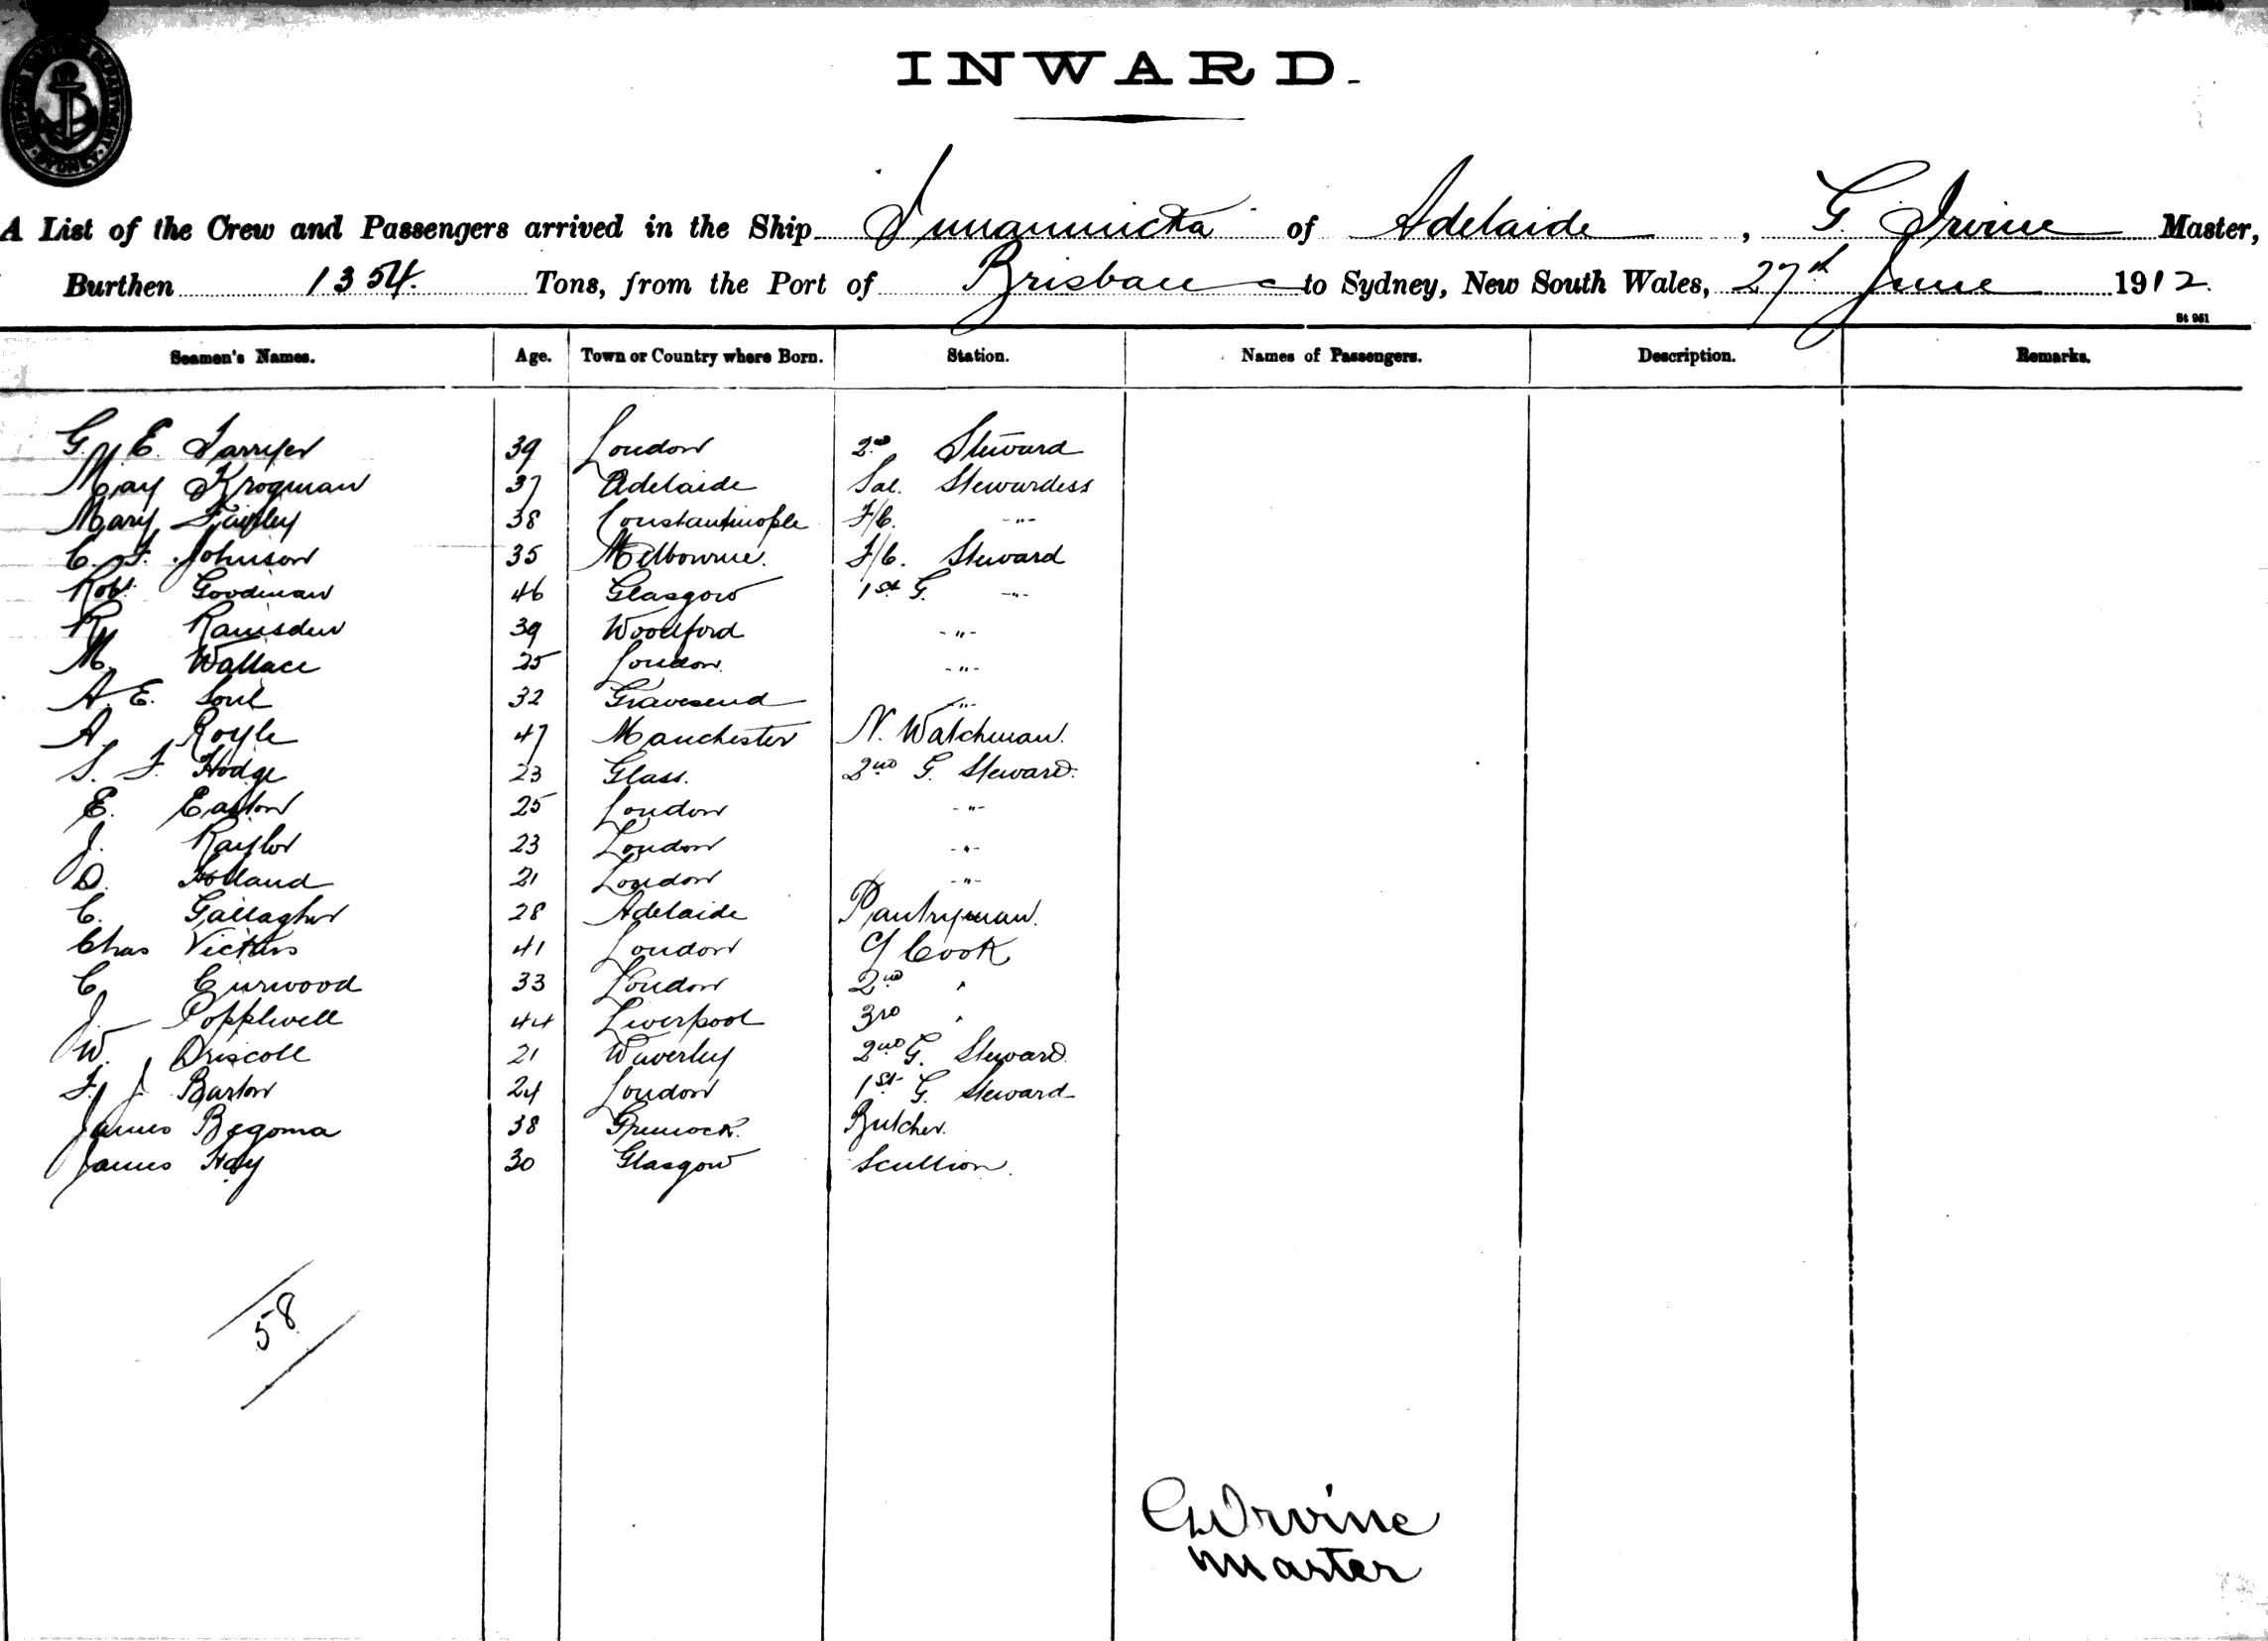 INWARD.
A List of the Crew and Passengers arrived in the Ship Innamincka of Adelaide, G. Irvine Master,
Burthen 1354. Tons, from the Port of Brisbane to Sydney, New South Wales, 27th June 1912.
St 961
Seamen's Names. Age. Town or Country where Born. Station. Names of Passengers. Description. Remarks.
G. E. 39 London 2nd Steward
May Krogman 37 Adelaide Sal. Stewardess
Mary Fairley 38 Constantinople F/C. -"-
C. F. Johnson 35 Melbourne. F/C. Steward
Robt Goodman 46 Glasgow 1st G. -"-
Ry Ramsden 39 Woodford -"-
M. Wallace 25 London -"-
A. E. Soul 32 Gravesend -"-
A. Royle 47 Manchester N. Watchman.
S. F. Hodge 23 Glass. 2nd G. Steward.
E. Easton 25 London -"-
J. Raylor 23 London -"-
D. Holland 21 London -"-
C. Gallagher 28 Adelaide Pantryman.
Chas Victors 41 London Cook
C. Curwood 33 London 2nd "
J. Popplwell 44 Liverpool 3rd "
W. Driscoll 21 Waverley 2nd G. Steward.
F. J. Barton 24 London 1st G. Steward
James Begoma 38 Greenock. Butcher.
James Hay 30 Glasgow Scullion.
58
G Irvine
Master